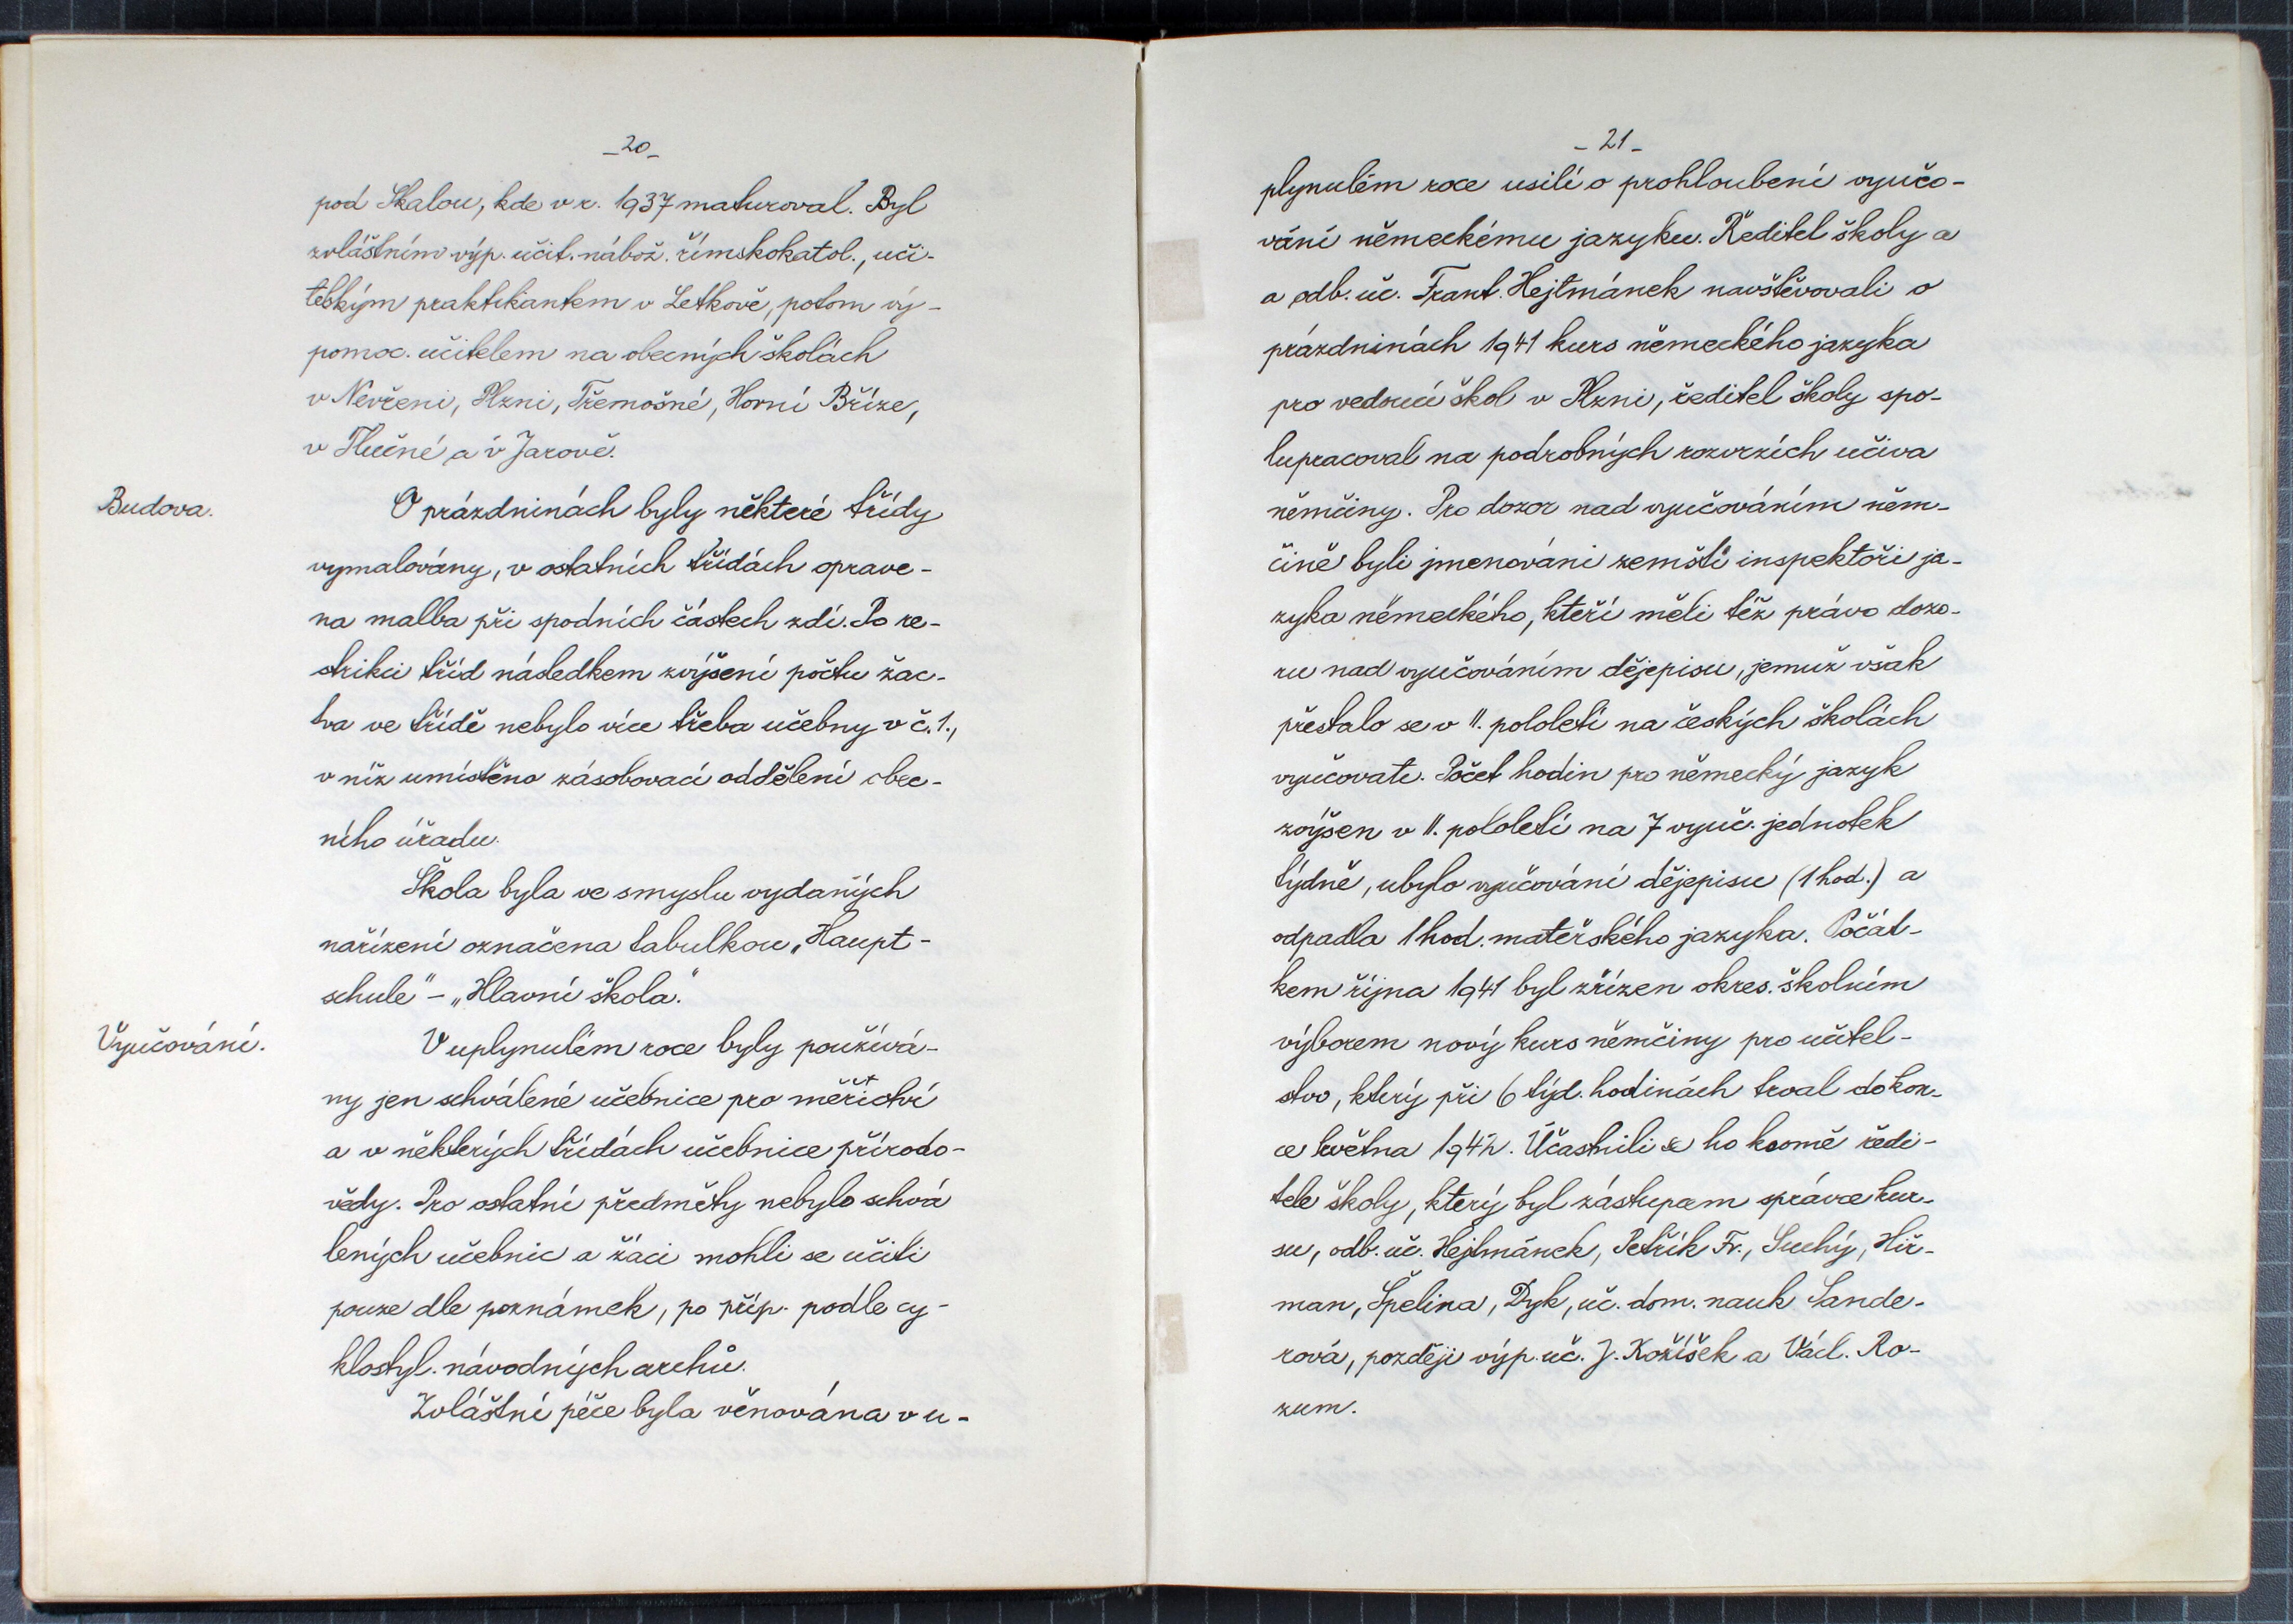 -20-
pod Skalou, kde v r. 1937 maturoval. Byl
zvláštním výp. učit. nábož. římskokatol., uči-
telským praktikantem v Letkově, potom vý-
pomoc. učitelem na obecných školách
v Nevřeni, Plzni, Třemošné, Horní Bříze,
v Tlučné a v Jarově.
Budova.
O prázdninách byly některé třídy
vymalovány, v ostatních třídách oprave-
na malba při spodních částech zdí. Po re-
strikci tříd následkem zvýšení počtu žac-
tva ve třídě nebylo více třeba učebny v č. 1.,
v níž umístěno zásobovací oddělení obec-
ního úřadu.
Škola byla ve smyslu vydaných
nařízení označena tabulkou „Haupt-
schule" – „Hlavní škola."
Vyučování.
V uplynulém roce byly používá-
ny jen schválené učebnice pro měřictví
a v některých třídách učebnice přírodo-
vědy. Pro ostatní předměty nebylo schvá
lených učebnic a žáci mohli se učiti
pouze dle poznámek, po příp. podle cy-
klostyl. návodných archů.
Zvláštní péče byla věnována v u-
-21-
plynulém roce usilí o prohloubení vyučo-
vání německému jazyku. Ředitel školy a
a odb. uč. Frant. Hejtmánek navštěvovali o
prázdninách 1941 kurs německého jazyka
pro vedoucí škol v Plzni, ředitel školy spo-
lupracoval na podrobných rozvrzích učiva
němčiny. Pro dozor nad vyučováním něm-
čině byli jmenováni zemští inspektoři ja-
zyka německého, kteří měli též právo dozo-
ru nad vyučováním dějepisu, jemuž však
přestalo se v II. pololetí na českých školách
vyučovati. Počet hodin pro německý jazyk
zvýšen v II. pololetí na 7 vyuč. jednotek
týdně, ubylo vyučování dějepisu (1 hod.) a
odpadla 1 hod. mateřského jazyka. Počát-
kem října 1941 byl zřízen okres. školním
výborem nový kurs němčiny pro učitel-
stvo, který při 6 týd. hodinách trval do kon-
ce května 1942. Účastnili se ho kromě ředi-
tele školy, který byl zástupcem správce kur-
su, odb. uč. Hejtmánek, Petřík Fr., Suchý, Hiř-
man, Špelina, Dyk, uč. dom. nauk Sande-
rová, později výp. uč. J. Kožíšek a Václ. Ro-
zum.